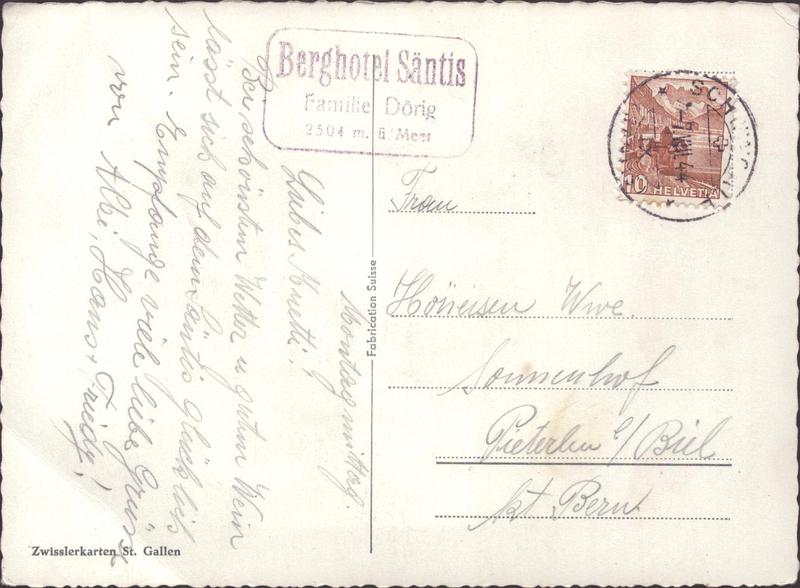 Berghotel Säntis
Familie Dörig
2504 m. ü/Meer
Montag mittag.
Liebes Muetti!
Bei schönstem Wetter u. gutem Wein
lässt sich auf dem Säntis glücklich
sein. Empfange viele liebe Grüsse
von Albi, Hans + Friedy!
Fabrication Suisse
Zwisslerkarten St. Gallen
10 HELVETIA
Frau
Höneisen Wwe.
Sonnenhof
Pieterlen b/Biel
kt. Bern